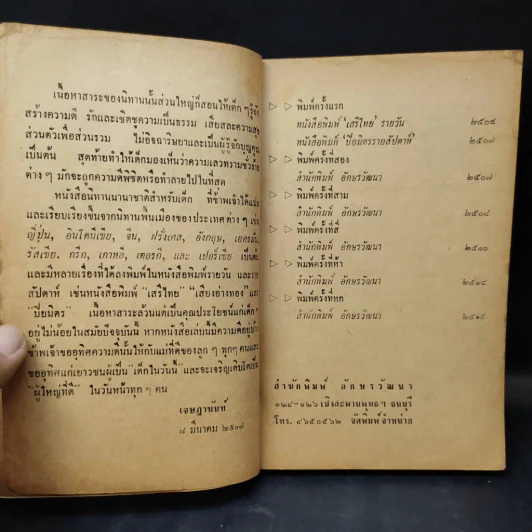 เนื้อหาสาระของนิทานนั้นส่วนใหญ่ก็สอนให้เด็ก ๆ รู้จัก
สร้างความดี รักและเชิดชูความเป็นธรรม เสียสละความสุข
ส่วนตัวเพื่อส่วนรวม ไม่อิจฉาริษยาและเป็นผู้รู้จักบุญคุณ
เป็นต้น สุดท้ายทำให้เด็กมองเห็นว่าความเลวทรามชั่วร้าย
ต่าง ๆ มักจะถูกความดีพิชิตหรือทำลายไปในที่สุด
หนังสือนิทานนานาชาติสำหรับเด็ก ที่ข้าพเจ้าได้แปล
และเรียบเรียงขึ้นจากนิทานพื้นเมืองของประเทศต่าง ๆ เช่น
ญี่ปุ่น, อินโดนีเซีย, จีน, ฝรั่งเศส, อังกฤษ, เยอรมัน
รัสเซีย, กรีก, เกาหลี, เตอรกี, และ เปอร์เซีย เป็นต้น
และมีหลายเรื่องที่ได้ลงพิมพ์ในหนังสือพิมพ์รายวัน และราย
สัปดาห์ เช่นหนังสือพิมพ์ "เสรีไทย" "เสียงอ่างทอง" และ
"ปิยมิตร" เนื้อหาสาระล้วนแต่เป็นคุณประโยชน์แก่เด็ก
อยู่ไม่น้อยในสมัยปัจจุบันนี้ หากหนังสือเล่มนี้มีความดีอยู่บ้าง
ข้าพเจ้าขออุทิศความดีนั้นให้กับแม่ที่ดีของลูก ๆ ทุก ๆ คนและ
ขออุทิศแก่เยาวชนผู้เป็น "เด็กในวันนี้" และจะเจริญเติบโตเป็น
"ผู้ใหญ่ที่ดี" ในวันหน้าทุก ๆ คน
เจษฎานันท์
๘ มีนาคม ๒๕๐๗
พิมพ์ครั้งแรก
หนังสือพิมพ์ 'เสรีไทย' รายวัน ๒๕๐๔
หนังสือพิมพ์ 'ปิยมิตรรายสัปดาห์' ๒๕๐๗
พิมพ์ครั้งที่สอง
สำนักพิมพ์ อักษรวัฒนา ๒๕๐๗
พิมพ์ครั้งที่สาม
สำนักพิมพ์ อักษรวัฒนา ๒๕๐๘
พิมพ์ครั้งที่สี่
สำนักพิมพ์ อักษรวัฒนา ๒๕๑๐
พิมพ์ครั้งที่ห้า
สำนักพิมพ์ อักษรวัฒนา ๒๕๑๔
พิมพ์ครั้งที่หก
สำนักพิมพ์ อักษรวัฒนา ๒๕๑๙
สำนักพิมพ์ อักษรวัฒนา
๑๒๔-๑๒๖ เชิงสะพานพุทธ ฯ ธนบุรี
โทร. ๔๖๕๐๕๖๒ จัดพิมพ์จำหน่าย